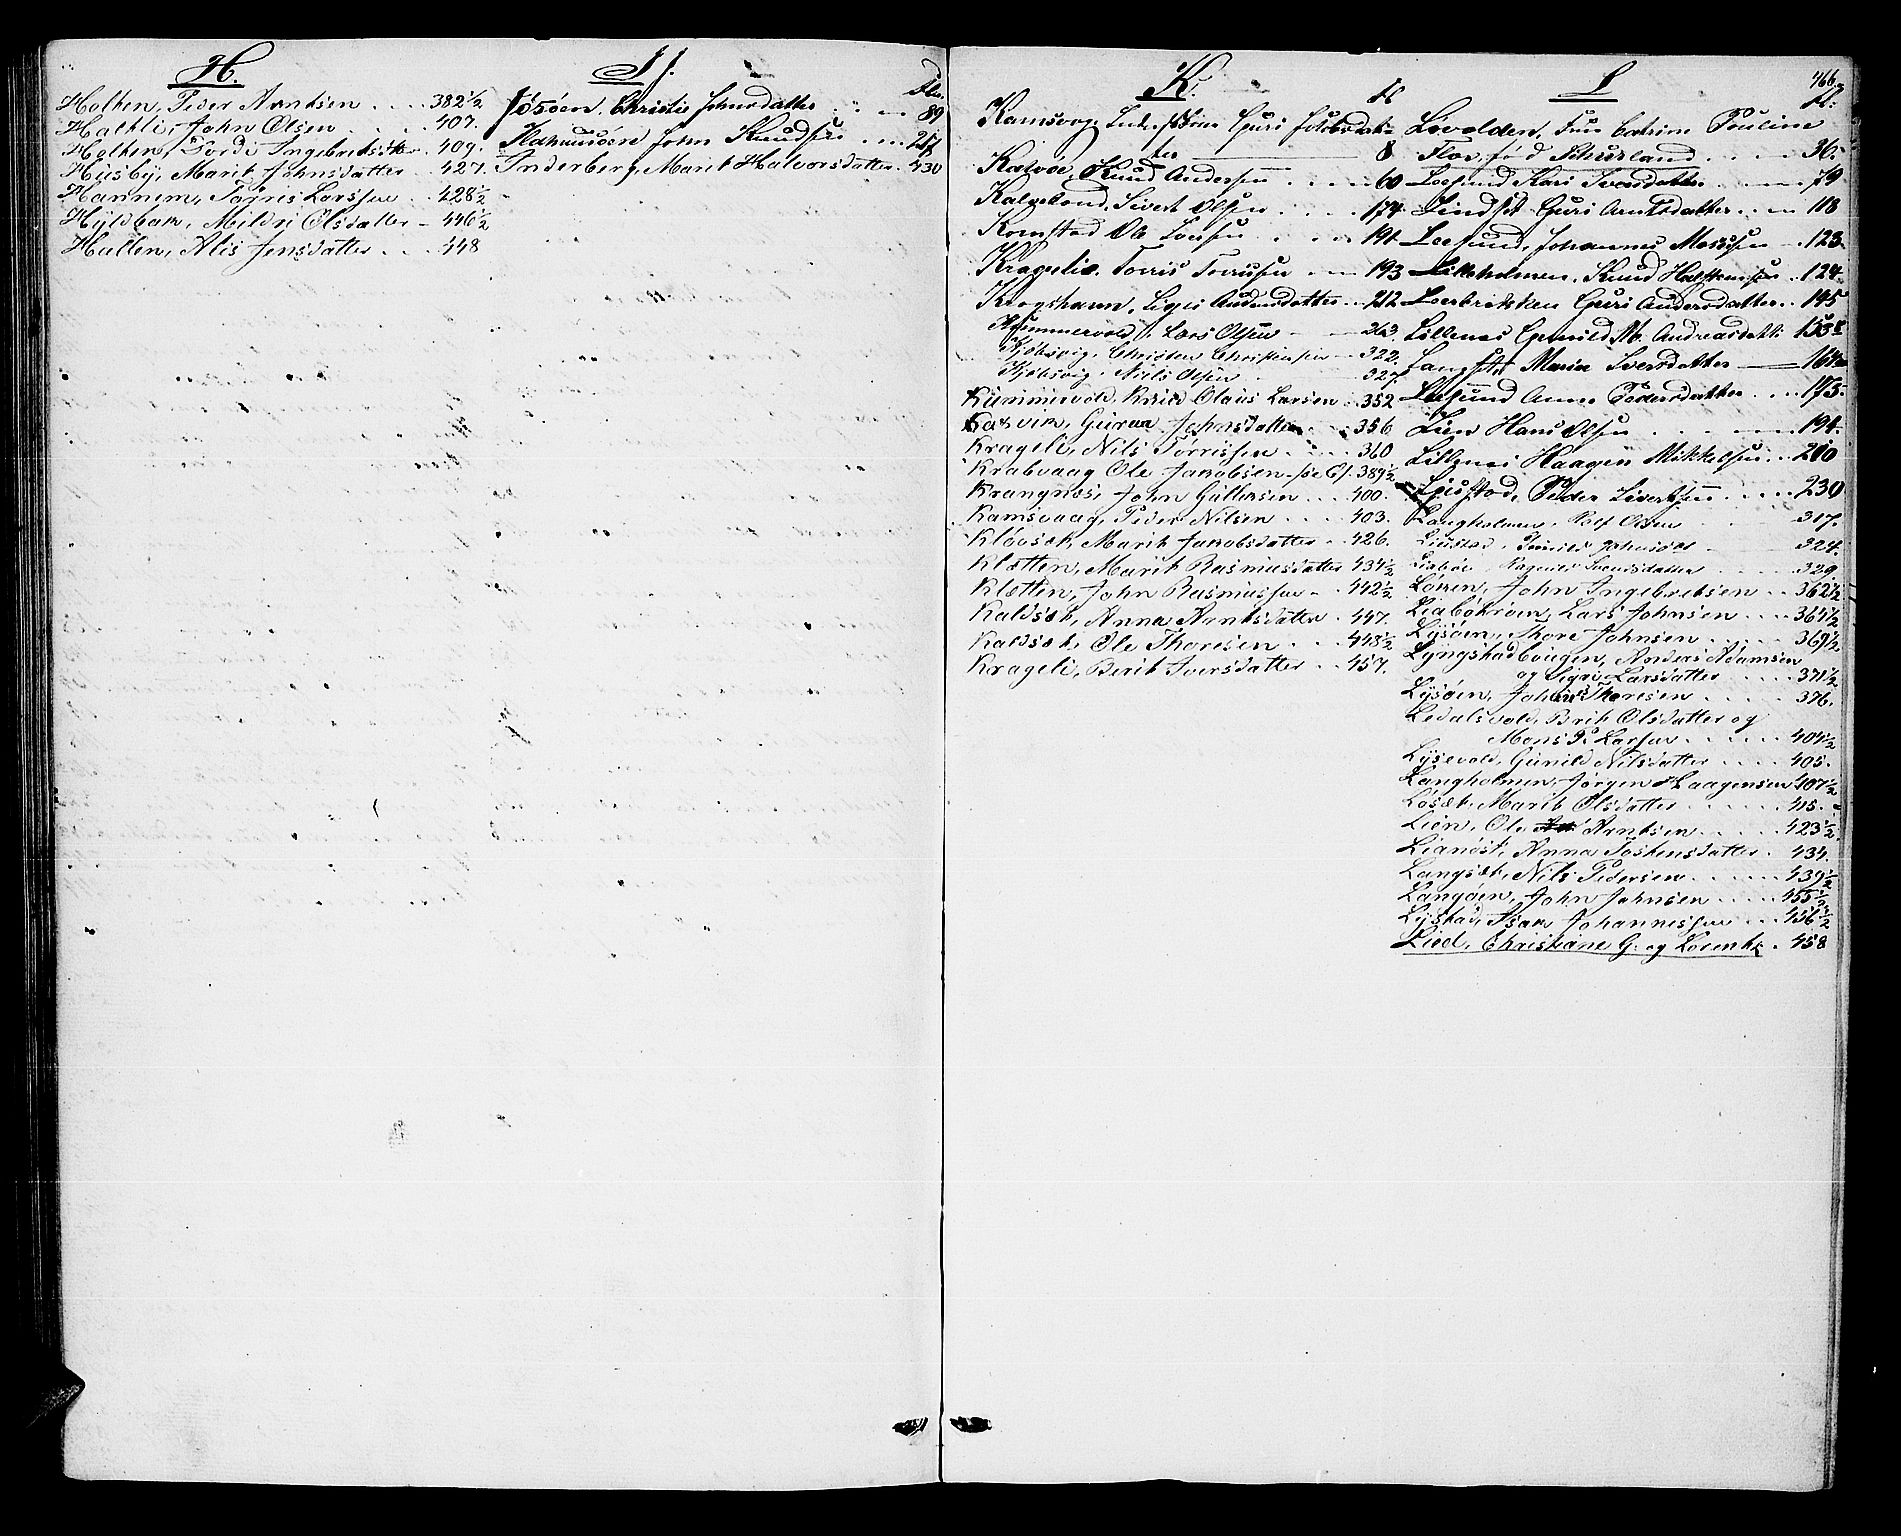 H.
Holten, Peder Arntsen 382 1/2
Hathli, John Olsen 407.
Holten, Tordi Ingebritsdtter 409.
Husby, Marit Johnsdatter 427.
Hannem, Torris Larssen 428 1/2
Hyldbak, Mildri Olsdatter 446 1/2
Hullen, Alis Jensdatter 448
IJ. Fol.
Jøsøen, Christie Johnsdatter 89
John Knudsen 257
Inderberg, Marit Halvorsdatter 430
K. Fol
Ramsvog, Guri Jakobsdat-
ter 8
Kalvøe, Knud Andersen 60
Kalvebond, Sivert Olsen 174
Komstad Ole Iversen 191
Kragelie, Torris Torrissen 193
Krogshavn, Ligri Audensdatter 212
Kummervold, Lars Olsen 263.
Kjøbsvig, Christen Christensen 322.
Kjøbsvig, Niels Olsen 327.
Kummervold, Knud Olaus Larsen 352
Kasvik, Gurua Johnsdatter 356
Krageli, Nils Torrissen 360
Krabvaag Ole Jakobsen 389 1/2
Krangnæs, John Gullersen 400.
Kamsvaag, Peder Nilsen 403.
Kløvset, Marit Jakobsdatter 426.
Kletten, Marit Rasmusdatter 434 1/2
Kletten, John Rasmussen 442 1/2
Kaldset, Anna Arntsdatter 447.
Kaldset, Ole Thoresen 448 1/2
Krageli, Berit Iversdatter 457.
L 466
Fol:
Lövolden, Fru Catrine Pouline
Flor, fød Schuzland 36.
Loesund Kari Iversdatter 79
Lindset Guri Arntsdatter 118
Loesund, Johannes Mossisen 123
Lilleholmen, Knud Halstensen 124
Leerbrekken Guri Andersdatter 145
Lillenes Gunild M. Andreasdatt: 153
Langset Marie Iversdatter 164
Loesund Anne Pedersdatter 173
Lien Hans Olsen 194.
Lillenes Haagen Mikkelsen 210
Ljusstad, Peder Sivertsen 230
Langholmen, Rolf Olsen 317.
Liustad, Gunild Johnsdt 324.
Liabøe, Ragnild Svendsdatter 329
Løseen, John Ingebretsen 362 1/2
Liabøhroen, Lars Johnsen 364 1/2
Lysøen, Thore Johnsen 369 1/2
Lyngstadbougen, Anders Adamsen
og Sigri Larsdatter 371 1/2
Lysøen, John Thoresen 376.
Ledalsvold, Brit Olsdatter og
Mons P. Larsen 404 1/2
Lysevold, Gunild Nilsdatter 405.
Langholmen, Jørgen Haagensen 407 1/2
Løset, Marit Olsdatter 415.
Lien, Ole Arntsen 423 1/2
Lianøst, Anna Tostensdatter 434.
Langset, Nils Pedersen 439 1/2
Langøen, John Johnsen 455 1/2
Lystad, Isak Johannessen 456 1/2
Lied, Christiane G. og Lorentz 458